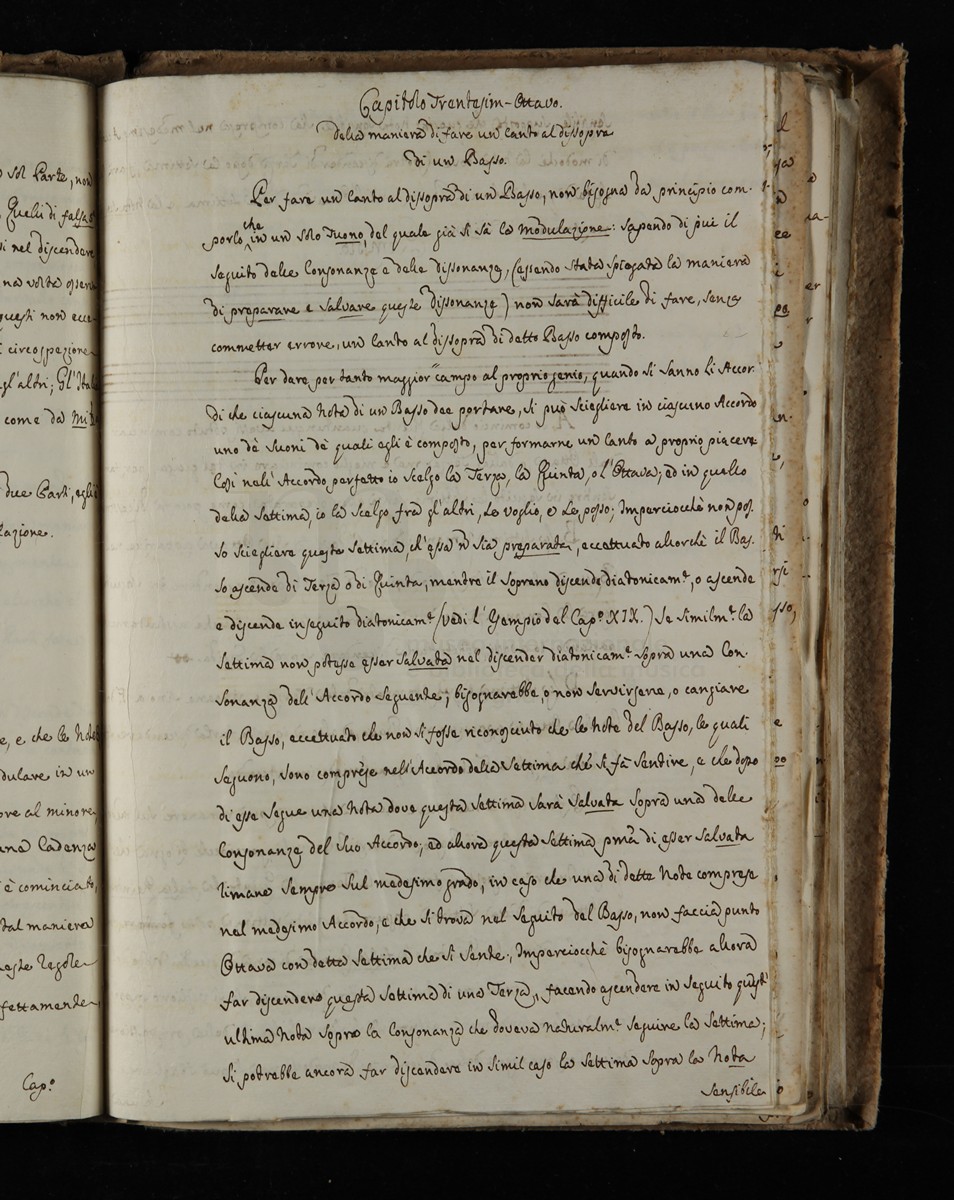 o sol Parte, non
Quelli di falsa
si nel discendere
na volta osser
questi non ecce
circospezione
gl'altri; Gl'Ital
come da Mi
due Parti, egli
lazione.
e, e che le Note
dulare in un
ore al minore
una Cadenza
è cominciato,
tal maniera
queste regole
fettamente
Cap.º
Capitolo Trentesim-Ottavo.
della maniera di fare un Canto al dissopra
di un Basso.
Per fare un Canto al dissopra di un Basso, non bisogna da principio com-
porlo che in un solo Tuono, del quale già si sà la modulazione: sapendo di più il
seguito delle Consonanze e delle dissonanze, (essendo stata spiegata la maniera
di preparare e salvare queste dissonanze) non sarà difficile di fare, senza
commetter errore, un Canto al dissopra di detto Basso composto.
Per dare per tanto maggior campo al proprio genio, quando si sanno li Accor-
di che ciascuna Nota di un Basso dee portare, si può sciegliere in ciascuno Accordo
uno dè Suoni dè quali egli è composto, per formarne un Canto a proprio piacere
Così nell'Accordo perfetto io scelgo la Terza, la Quinta, o l'Ottava; ed in quello
della Settima, io la scelgo frà gl'altri, se voglio, e se posso; Imperciocchè non pos-
so sciegliere questa Settima, ch'essa ñ sia preparata, eccettuato allorchè il Bas-
so ascende di Terza o di Quinta, mentre il Soprano discende diatonicam.e, o ascende
e discende in seguito diatonicam.e (vedi l'Esempio del Cap.º XIX.) Se similm.e la
Settima non potesse esser salvata nel discender diatonicam.e sopra una Con-
sonanza dell'Accordo seguente; bisognarebbe, o non servirsene, o cangiare
il Basso, eccettuato che non si fosse riconosciuto che le Note del Basso, le quali
seguono, sono comprese nell'Accordo della Settima che si fà sentire, e che dopo
di esse segue una Nota dove questa Settima sarà salvata sopra una delle
Consonanze del suo Accordo; ed allora questa Settima pma di esser salvata
rimane sempre sul medesimo grado, in caso che una di dette Note comprese
nel medesimo Accordo, e che si trova nel seguito del Basso, non faccia punto
Ottava con detta Settima che si sente, Imperciocchè bisognarebbe allora
far discendere questa Settima di una Terza, facendo ascendere in seguito quest'
ultima Nota sopra la Consonanza che doveva naturalm.e seguire la Settima;
si potrebbe ancora far discendere in simil caso la Settima sopra la Nota
sensibile